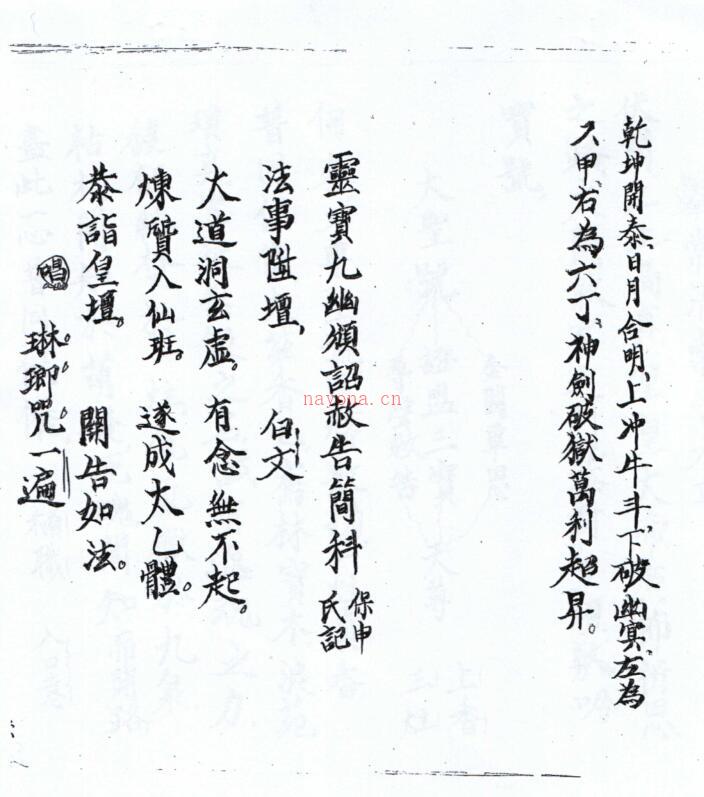 乾坤開泰、日月合明、上冲牛斗、下破幽冥、左為
六甲、右為六丁、神劍破獄萬利超昇。
靈寶九幽頒詔赦告簡科 保申氏記
法事陞壇、 白文
大道洞玄虛。有念無不起。
煉質入仙班。遂成太乙體。
恭詣皇壇。 開告如法。
唱 琳瑯咒一遍
nayona.cn